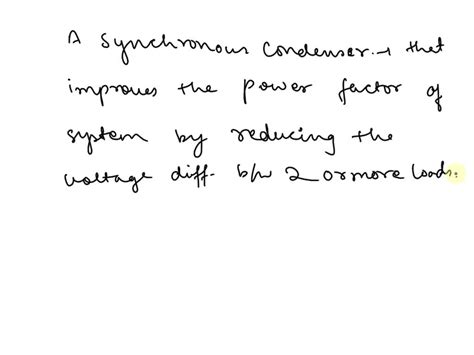 A synchronous condenser → that
improves the power factor of
system by reducing the
voltage diff. b/w 2 or more loads.